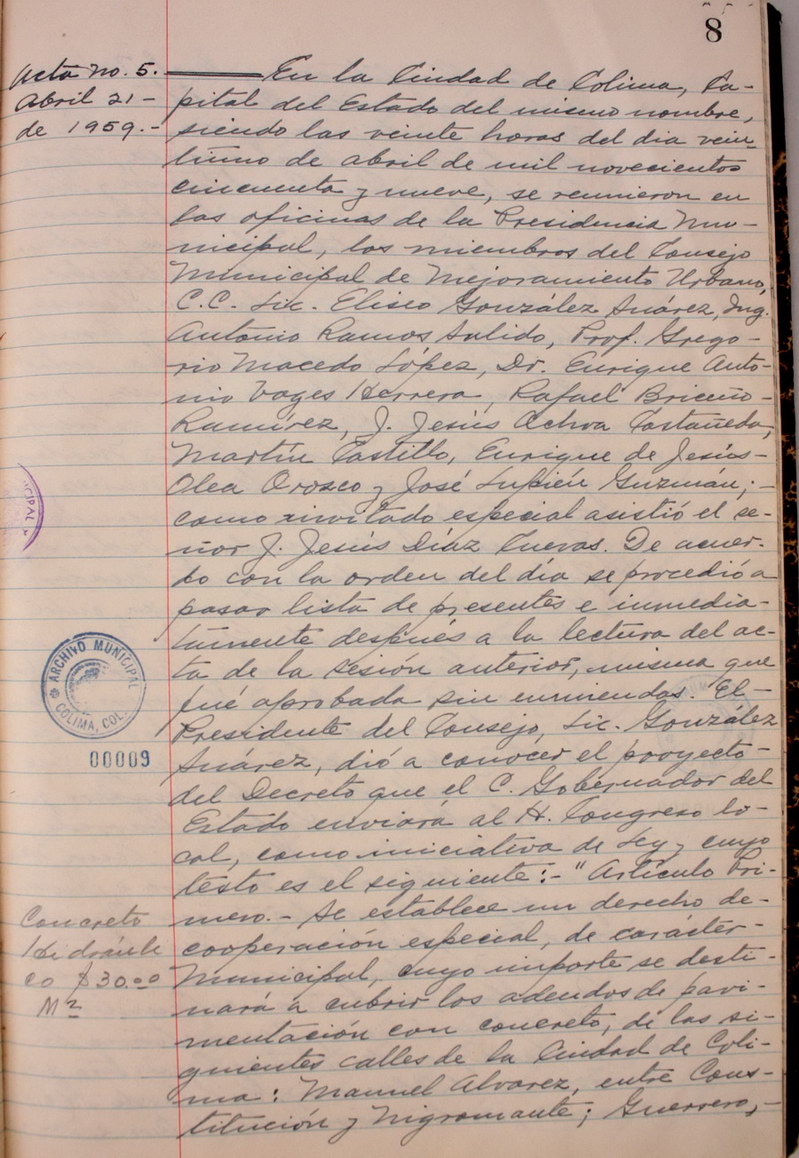 8
Acta no. 5.
Abril 21-
de 1959.-
En la Ciudad de Colima, Ca-
pital del Estado del mismo nombre,
siendo las veinte horas del dia vein-
tiuno de abril de mil novecientos
cincuenta y nueve, se reunieron en
las oficinas de la Presidencia Mu-
nicipal, los miembros del Consejo
Municipal de Mejoramiento Urbano,
C.C. Lic. Eliseo González Suárez, Ing.
Antonio Ramos Salido, Prof. Grego-
rio Macedo López, Dr. Enrique Anto-
nio Vages Herrera, Rafael Briceño-
Ramírez, J. Jesús Ochoa Castañeda,
Martín Castillo, Enrique de Jesús-
Olea Orozco y José Lupién Guzmán;-
como invitado especial asistió el se-
ñor J. Jesús Díaz Cuevas. De acuer-
do con la orden del día se procedió a
pasar lista de presentes e inmedia-
tamente después a la lectura del ac-
ta de la sesión anterior, misma que
fué aprobada sin enmiendas. El-
Presidente del Consejo, Lic. González
Suárez, dió a conocer el proyecto-
del Decreto que el C. Gobernador del
Estado enviará al H. Congreso lo-
cal, como iniciativa de Ley y cuyo
texto es el siguiente:- "Artículo Pri-
mero.- Se establece un derecho de-
cooperación especial, de carácter-
Municipal, cuyo importe se desti-
nará a cubrir los adeudos de pavi-
mentación con concreto, de las si-
guientes calles de la Ciudad de Coli-
ma: Manuel Alvarez, entre Cons-
titución y Nigromante; Guerrero,-
CIPAL
ARCHIVO MUNICIPAL
COLIMA, COL.
00009
Concreto
Hidráuli
co $30.00
M2